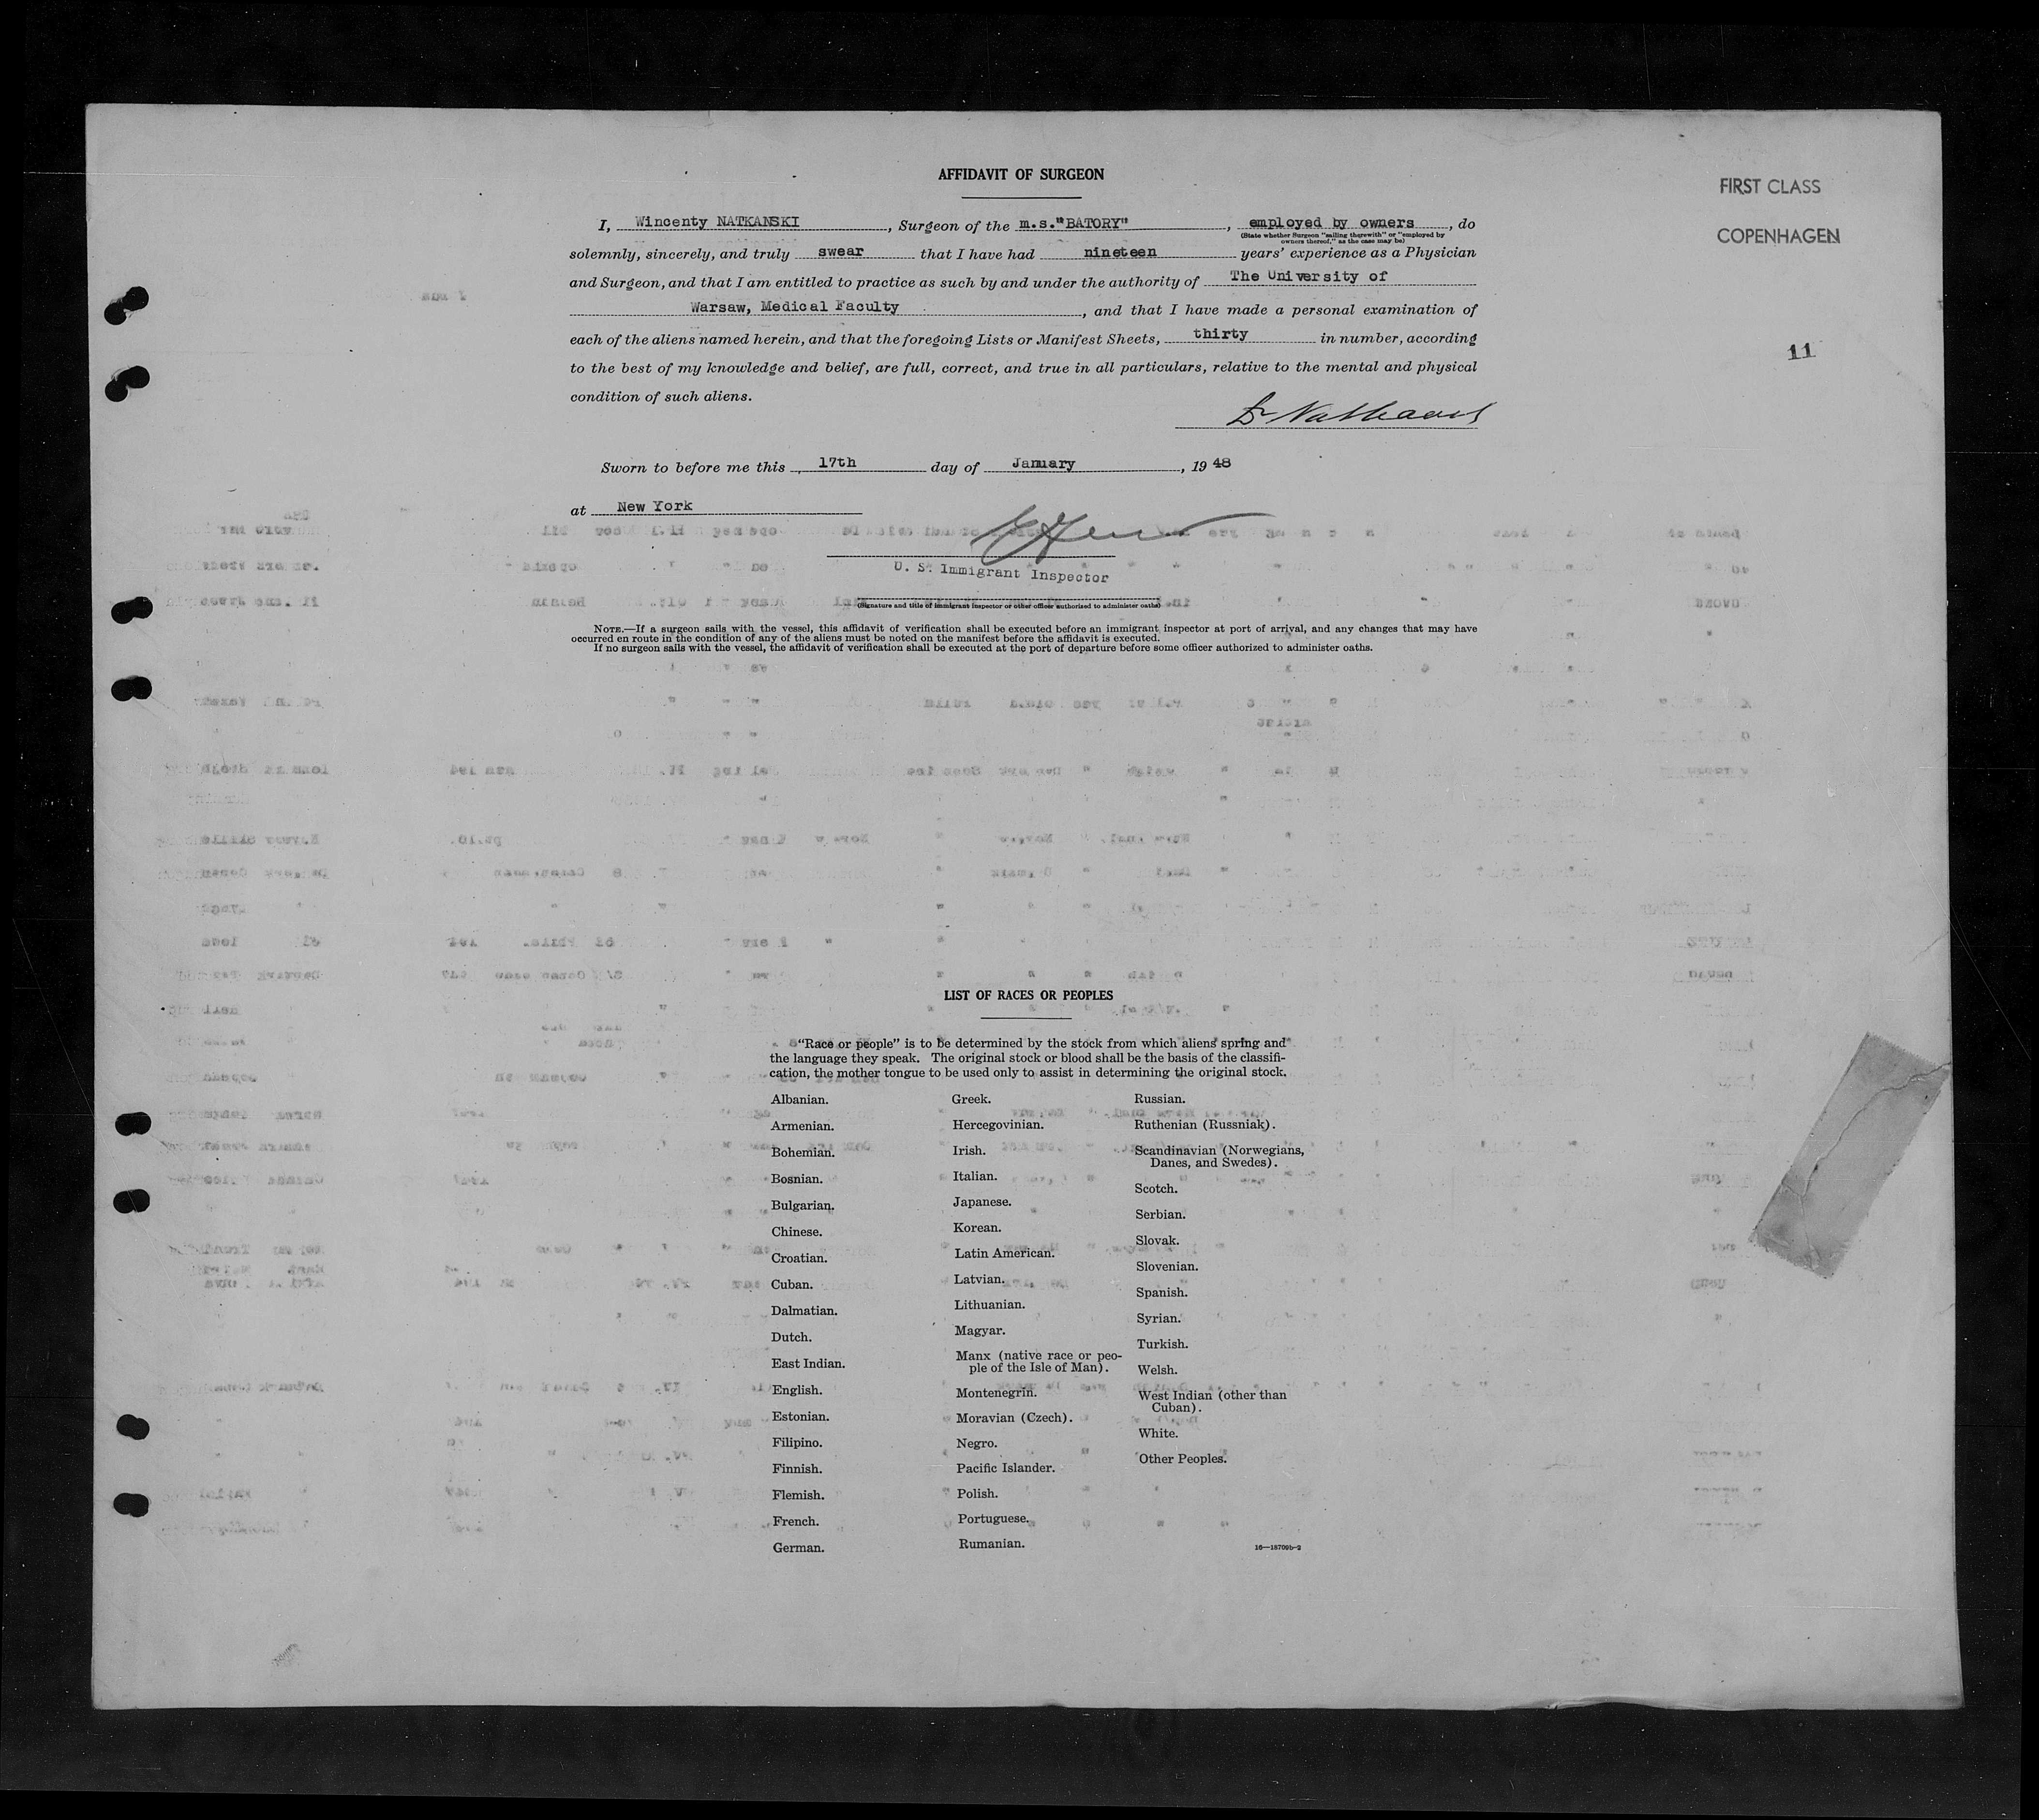 AFFIDAVIT OF SURGEON
FIRST CLASS
COPENHAGEN
11
I, Wincenty NATKANSKI, Surgeon of the m.s."BATORY", employed by owners, do
(State whether Surgeon "sailing therewith" or "employed by
owners thereof," as the case may be)
solemnly, sincerely, and truly swear that I have had nineteen years' experience as a Physician
and Surgeon, and that I am entitled to practice as such by and under the authority of The University of
Warsaw, Medical Faculty, and that I have made a personal examination of
each of the aliens named herein, and that the foregoing Lists or Manifest Sheets, thirty in number, according
to the best of my knowledge and belief, are full, correct, and true in all particulars, relative to the mental and physical
condition of such aliens.
Sworn to before me this 17th day of January, 1948
at New York
U. S. Immigrant Inspector
(Signature and title of immigrant inspector or other officer authorized to administer oaths)
NOTE.—If a surgeon sails with the vessel, this affidavit of verification shall be executed before an immigrant inspector at port of arrival, and any changes that may have
occurred en route in the condition of any of the aliens must be noted on the manifest before the affidavit is executed.
If no surgeon sails with the vessel, the affidavit of verification shall be executed at the port of departure before some officer authorized to administer oaths.
LIST OF RACES OR PEOPLES
"Race or people" is to be determined by the stock from which aliens spring and
the language they speak. The original stock or blood shall be the basis of the classifi-
cation, the mother tongue to be used only to assist in determining the original stock.
Albanian.
Armenian.
Bohemian.
Bosnian.
Bulgarian.
Chinese.
Croatian.
Cuban.
Dalmatian.
Dutch.
East Indian.
English.
Estonian.
Filipino.
Finnish.
Flemish.
French.
German.
Greek.
Hercegovinian.
Irish.
Italian.
Japanese.
Korean.
Latin American.
Latvian.
Lithuanian.
Magyar.
Manx (native race or peo-
ple of the Isle of Man).
Montenegrin.
Moravian (Czech).
Negro.
Pacific Islander.
Polish.
Portuguese.
Rumanian.
Russian.
Ruthenian (Russniak).
Scandinavian (Norwegians,
Danes, and Swedes).
Scotch.
Serbian.
Slovak.
Slovenian.
Spanish.
Syrian.
Turkish.
Welsh.
West Indian (other than
Cuban).
White.
Other Peoples.
16—18709b-2